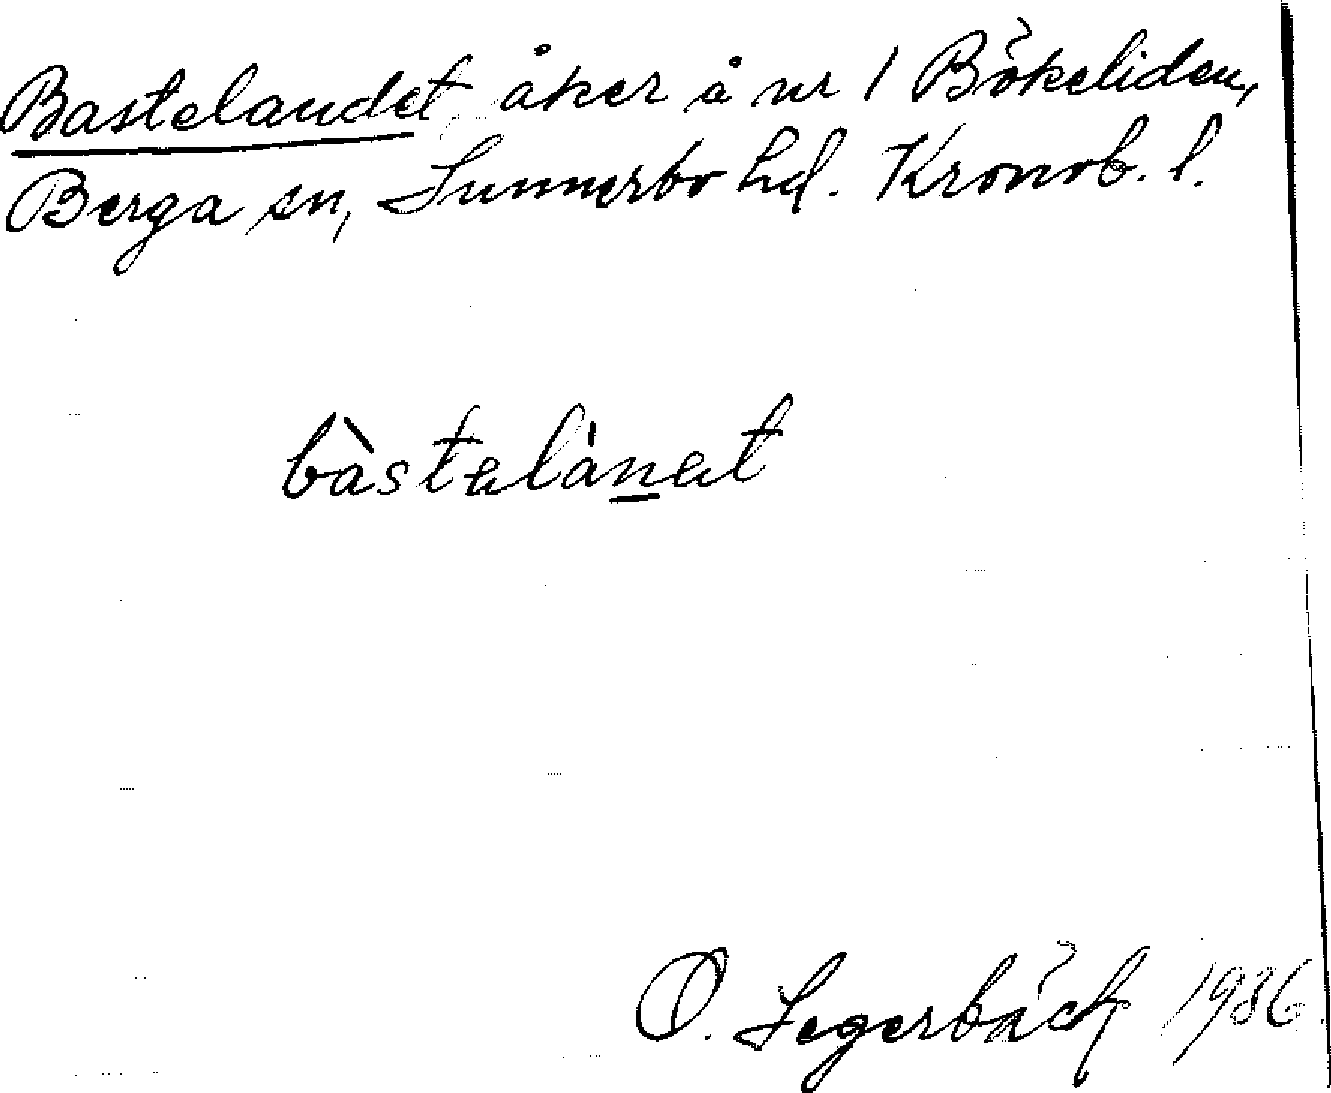 Bastelandet, åker å nr 1 Bökeliden,
Berga sn, Sunnerbo hd. Kronob. l.
bàstelànet
O. Segerbäck 1936.